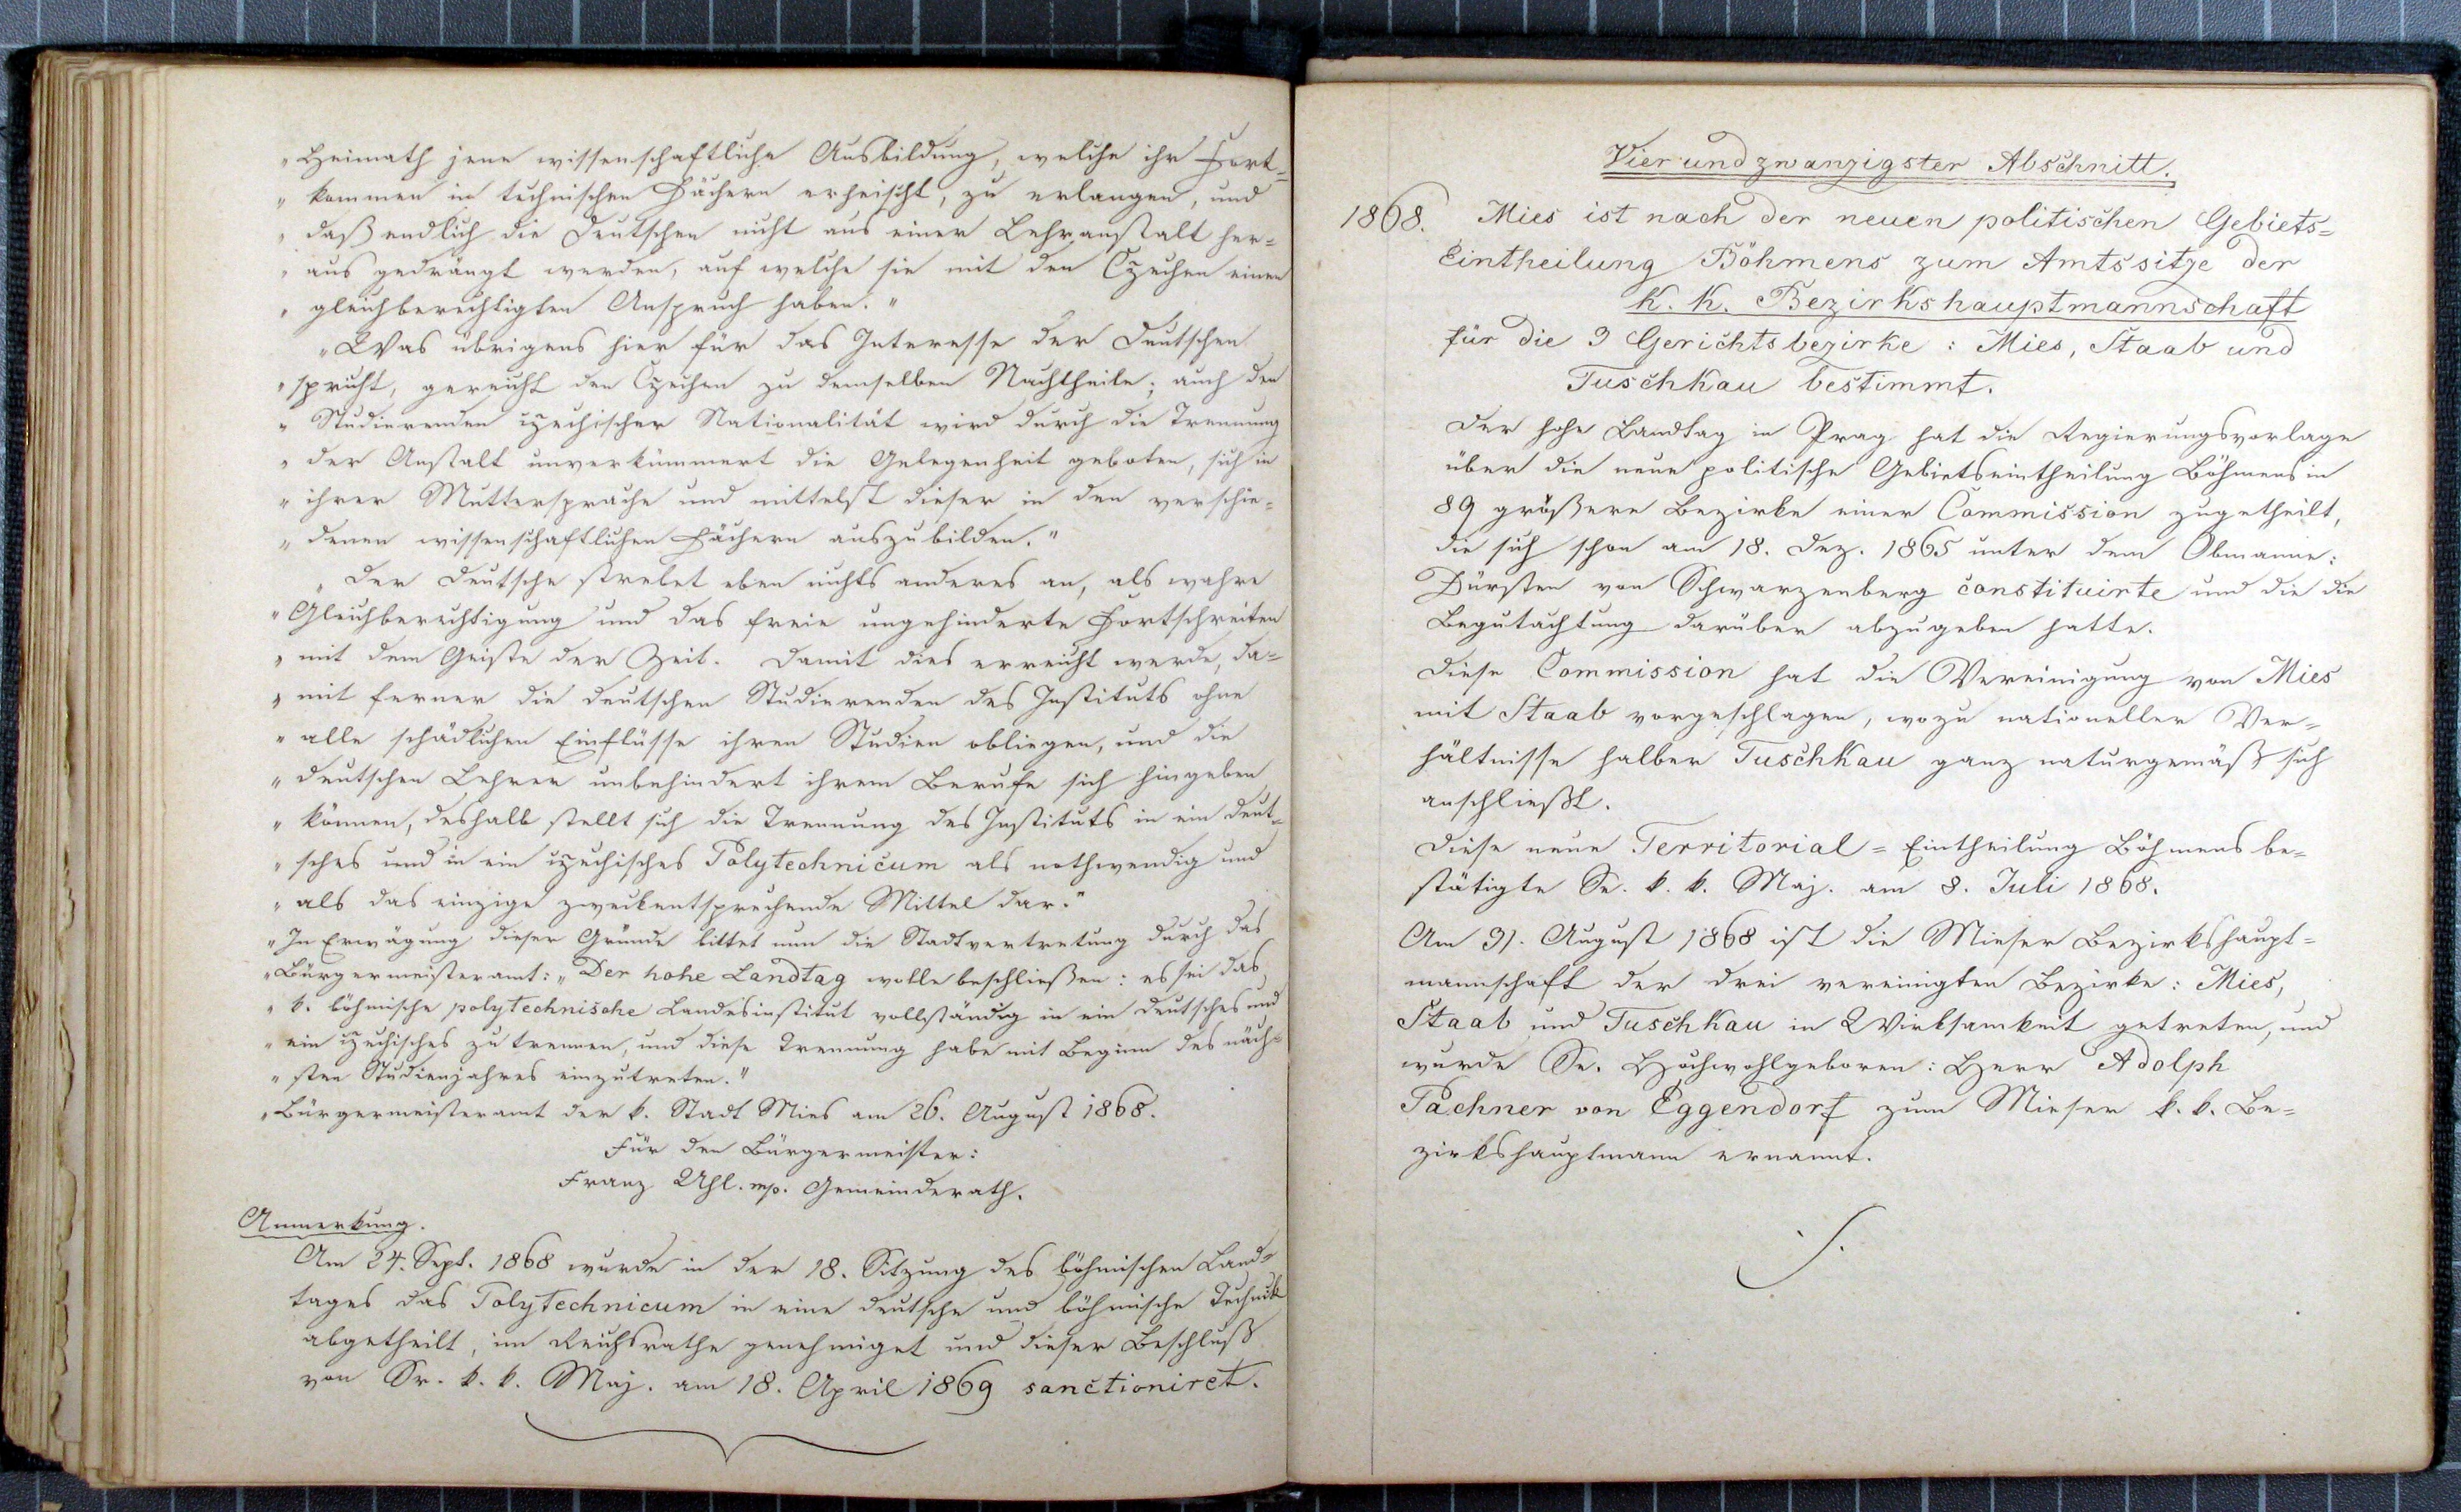 „Heimath jene wissenschaftliche Ausbildung, welche ihr Fort=
„kommen in technischen Fächern erheischt, zu erlangen, und
„daß endlich die Deutschen nicht aus einer Lehranstalt her=
„aus gedrängt werden, auf welche sie mit den Czechen einen
„gleichberechtigten Anspruch haben."
„Was übrigens hier für das Interesse der Deutschen
„spricht, gereicht den Czechen zu demselben Nachtheile; auch den
„Studierenden czechischer Nationalität wird durch die Trennung
„der Anstalt unverkümmert die Gelegenheit geboten, sich in
„ihrer Muttersprache und mittelst dieser in den verschie=
„denen wissenschaftlichen Fächern auszubilden."
„Der Deutsche strebet eben nichts anderes an, als wahre
„Gleichberechtigung und das freie ungehinderte Fortschreiten
„mit dem Geiste der Zeit. Damit dies erreicht werde, da=
„mit ferner die deutschen Studierenden des Instituts ohne
„alle schädlichen Einflüsse ihren Studien obliegen, und die
„deutschen Lehrer unbehindert ihrem Berufe sich hingeben
„können, deshalb stellt sich die Trennung des Instituts in ein deut=
„sches und in ein czechisches Polytechnicum als nothwendig und
„als das einzige zweckentsprechende Mittel dar."
„In Erwägung dieser Gründe bittet nun die Stadtvertretung durch das
„Bürgermeisteramt: „Der hohe Landtag wolle beschließen: es sei das
„k. böhmische polytechnische Landesinstitut vollständig in ein deutsches und
„ein czechisches zu trennen, und diese Trennung habe mit Beginn des näch=
„sten Studienjahres einzutreten."
„Bürgermeisteramt der k. Stadt Mies am 26. August 1868.
Für den Bürgermeister:
Franz Uhl. mp. Gemeinderath.
Anmerkung.
Am 24. Sept. 1868 wurde in der 18. Sitzung des böhmischen Land=
tages das Polytechnicum in eine deutsche und böhmische Technik
abgetheilt, im Reichsrathe genehmiget und dieser Beschluß
von Sr. k. k. Maj. am 18. April 1869 sanctioniret.
Vier und zwanzigster Abschnitt.
1868. Mies ist nach der neuen politischen Gebiets=
Eintheilung Böhmens zum Amtssitze der
K. K. Bezirkshauptmannschaft
für die 3 Gerichtsbezirke: Mies, Staab und
Tuschkau bestimmt.
Der hohe Landtag in Prag hat die Regierungsvorlage
über die neue politische Gebietseintheilung Böhmens in
89 größere Bezirke einer Commission zugetheilt,
die sich schon am 18. Dez. 1865 unter dem Obmanne:
Fürsten von Schwarzenberg constituirte und die die
Begutachtung darüber abzugeben hatte.
Diese Commission hat die Vereinigung von Mies
mit Staab vorgeschlagen, wozu nationeller Ver=
hältnisse halber Tuschkau ganz naturgemäß sich
anschließt.
Diese neue Territorial=Eintheilung Böhmens be=
stätigte Se. k. k. Maj. am 8. Juli 1868.
Am 31. August 1868 ist die Mieser Bezirkshaupt=
mannschaft der drei vereinigten Bezirke: Mies,
Staab und Tuschkau in Wirksamkeit getreten, und
wurde Se. Hochwohlgeboren: Herr Adolph
Pachner von Eggendorf zum Mieser k. k. Be=
zirkshauptmann ernannt.